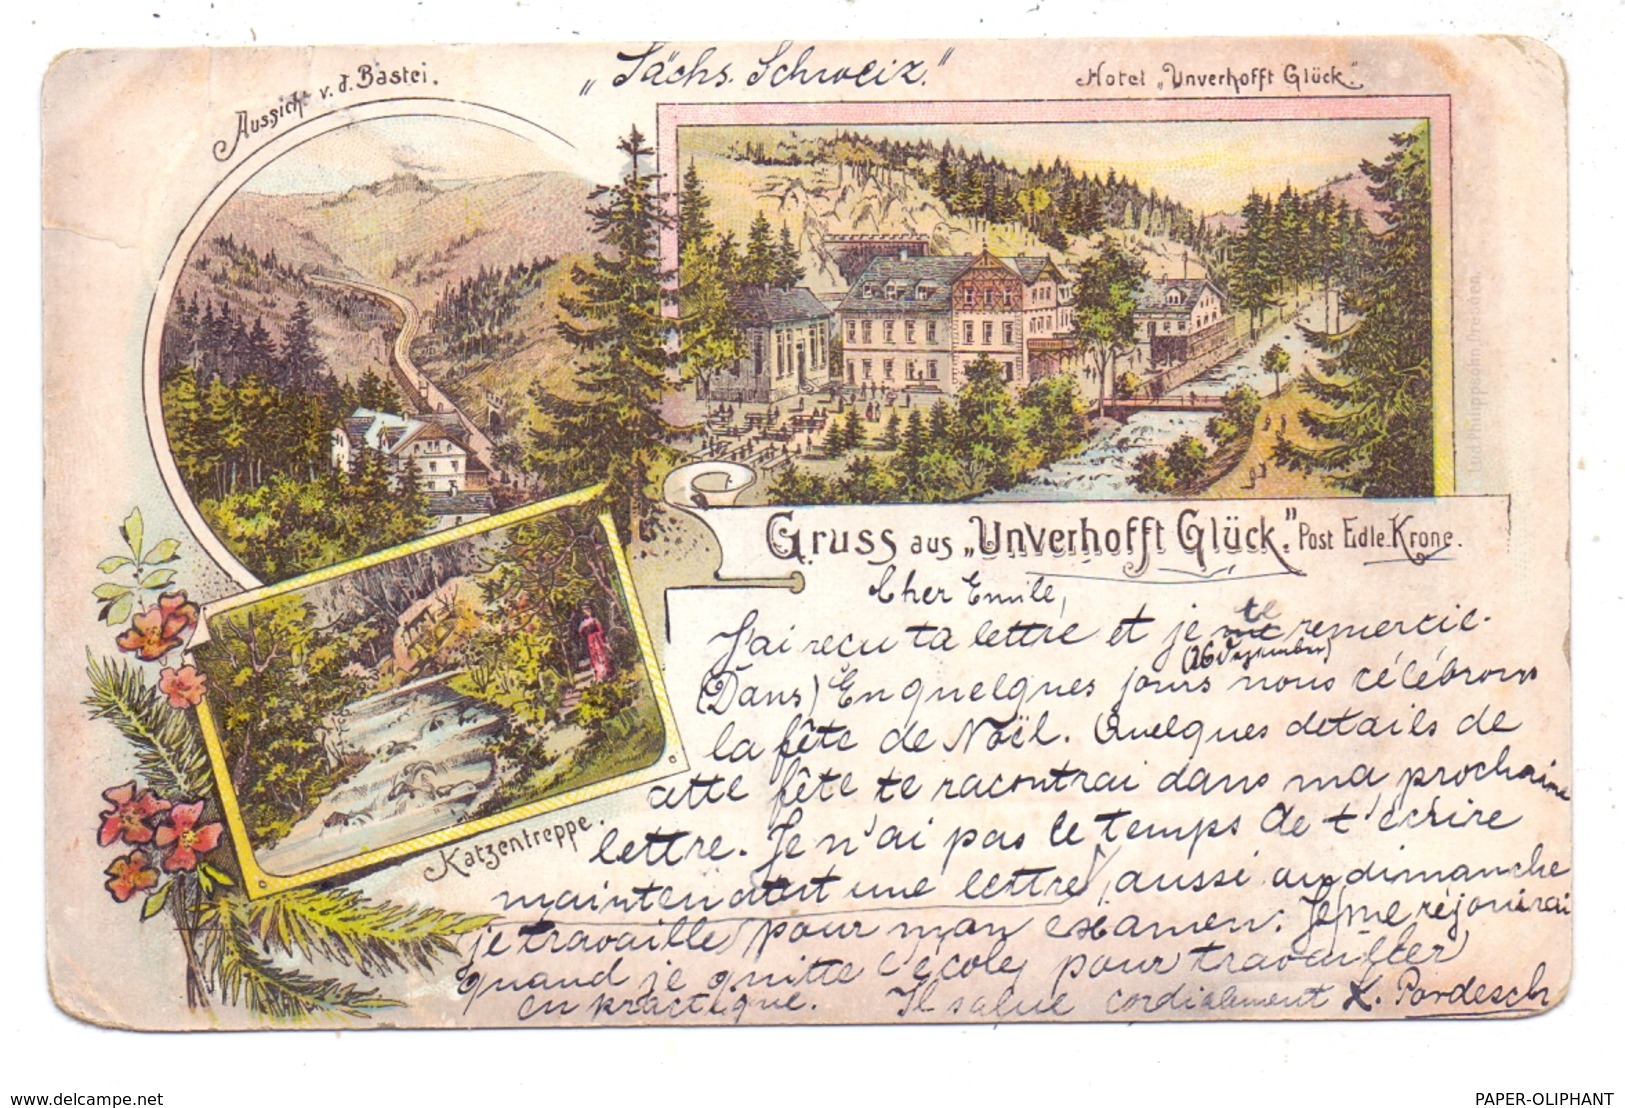 „Sächs. Schweiz."
Aussicht v. d. Bastei.
Hotel „Unverhofft Glück".
Gruss aus „Unverhofft Glück". Post Edle. Krone.
Katzentreppe.
Cher Emile,
J'ai reçu ta lettre et je te remercie.
(26 Dezember)
(Dans) En quelques jours nous célébrons
la fête de Noël. Quelques details de
cette fête te racontrai dans ma prochaine
lettre. Je n'ai pas le temps de t'écrire
maintenant une lettre, aussi au dimanche
je travaille pour mon examen. Je me réjouirai
quand je quitte l'école pour travailler
en practique. Il salue cordialement K. Pordesch
www.delcampe.net
PAPER-OLIPHANT